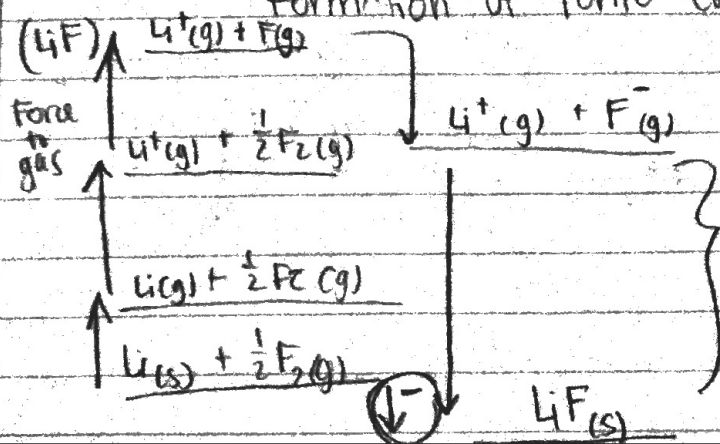 Formation of Ionic
(LiF) Li⁺(g) + F(g)
Force to gas
Li⁺(g) + ½F₂(g) Li⁺(g) + F⁻(g)
Li(g) + ½F₂(g)
Li(s) + ½F₂(g)
-
LiF(s)